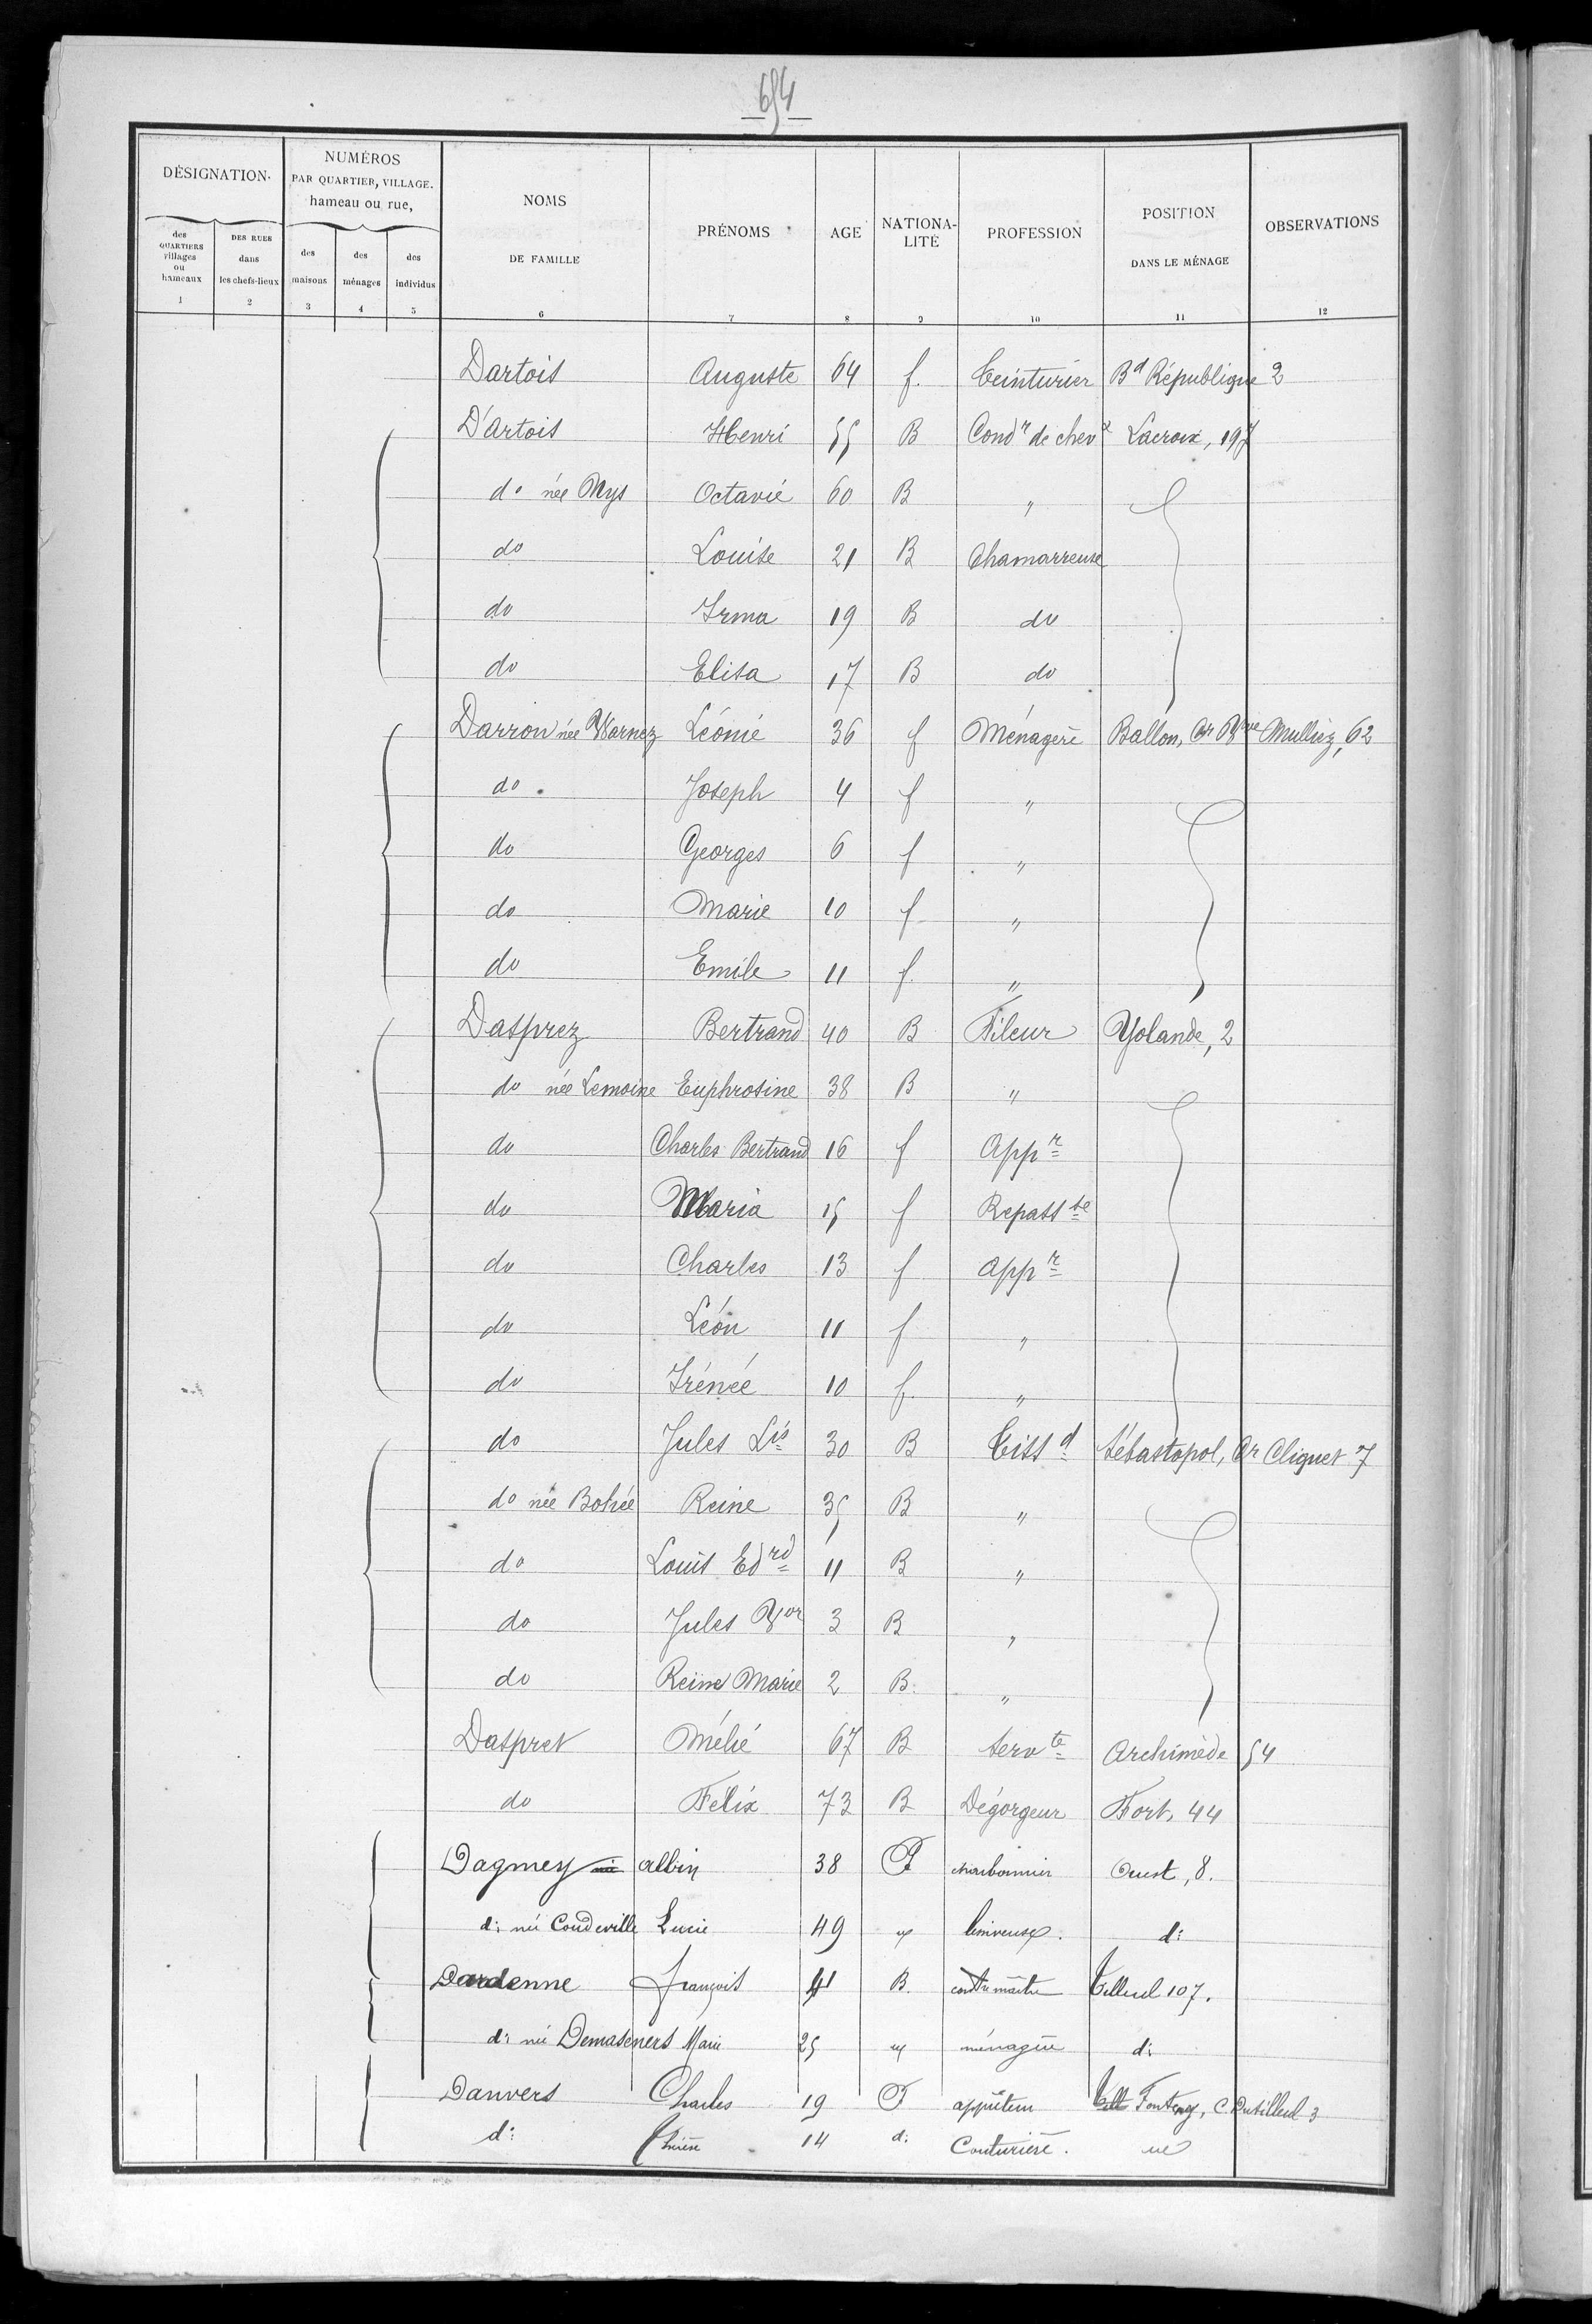 654
DÉSIGNATION
NUMÉROS PAR QUARTIER, VILLAGE. hameau ou rue,
NOMS DE FAMILLE
PRÉNOMS
AGE
NATIONA-LITÉ
PROFESSION
POSITION DANS LE MÉNAGE
OBSERVATIONS
des QUARTIERS villages ou hameaux
DES RUES dans les chefs-lieux
des maisons
des ménages
des individus
1 2 3 4 5 6 7 8 9 10 11 12
Dartois Auguste 64 f. Teinturier Bd République 2
D'Artois Henri 55 B Condr de chevx Lacroix, 197
do née Mys Octavie 60 B "
do Louise 21 B Chamarreuse
do Irma 19 B do
do Elisa 17 B do
Darron née Warnez Léonie 36 f Ménagère Ballon, Cr Vve Mulliez, 62
do Joseph 4 f "
do Georges 6 f "
do Marie 10 f "
do Emile 11 f. "
Dasprez Bertrand 40 B Fileur Yolande, 2
do née Lemoine Euphrosine 38 B "
do Charles Bertrand 16 f Appr
do Maria 15 f Repasse
do Charles 13 f appr
do Léon 11 f "
do Irénée 10 f. "
do Jules Lis 30 B Tissd Sébastopol, Cr Cliquet 7
do née Bohée Reine 35 B "
do Louis Edrd 11 B "
do Jules Vor 3 B "
do Reine Marie 2 B. "
Daspret Mélie 67 B Servte Archimède 54
do Félix 73 B Dégorgeur Fort, 44
Dagmey Albin 38 F charbonnier Ouest, 8.
d: née Coudeville Lucie 49 d:
Dardenne François 41 B. contremaître Tilleul 107.
d: née Marie 25 ménagère d:
Danvers Charles 19 F apprêteur Fontenoy, C Dutilleul 3
d: 14 d: Couturière.